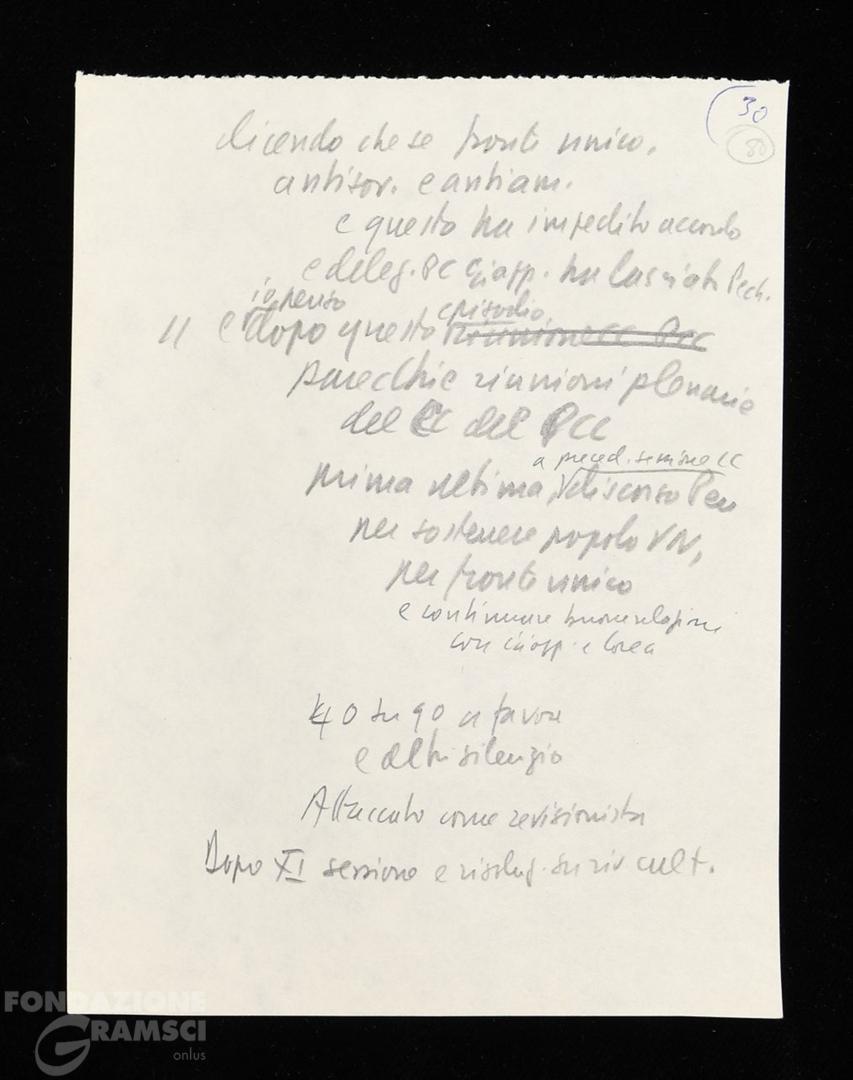 30
80
dicendo che se fronte unico,
antisov. e antiam.
e questo ha impedito accordo
e deleg. PC Giapp. ha lasciato Pech.
io penso episodio
11 e dopo questo riunione CC PCC
parecchie riunioni plenarie
del CC del PCC
a preced. sessione CC
prima ultima, discorso Pen
per sostenere popolo VN,
per fronte unico
e continuare buone relazioni
con Giapp. e Corea
40 su 90 a favore
e altri silenzio
Attaccato come revisionista
Dopo XI sessione e risoluz. su riv cult.
FONDAZIONE
GRAMSCI
onlus